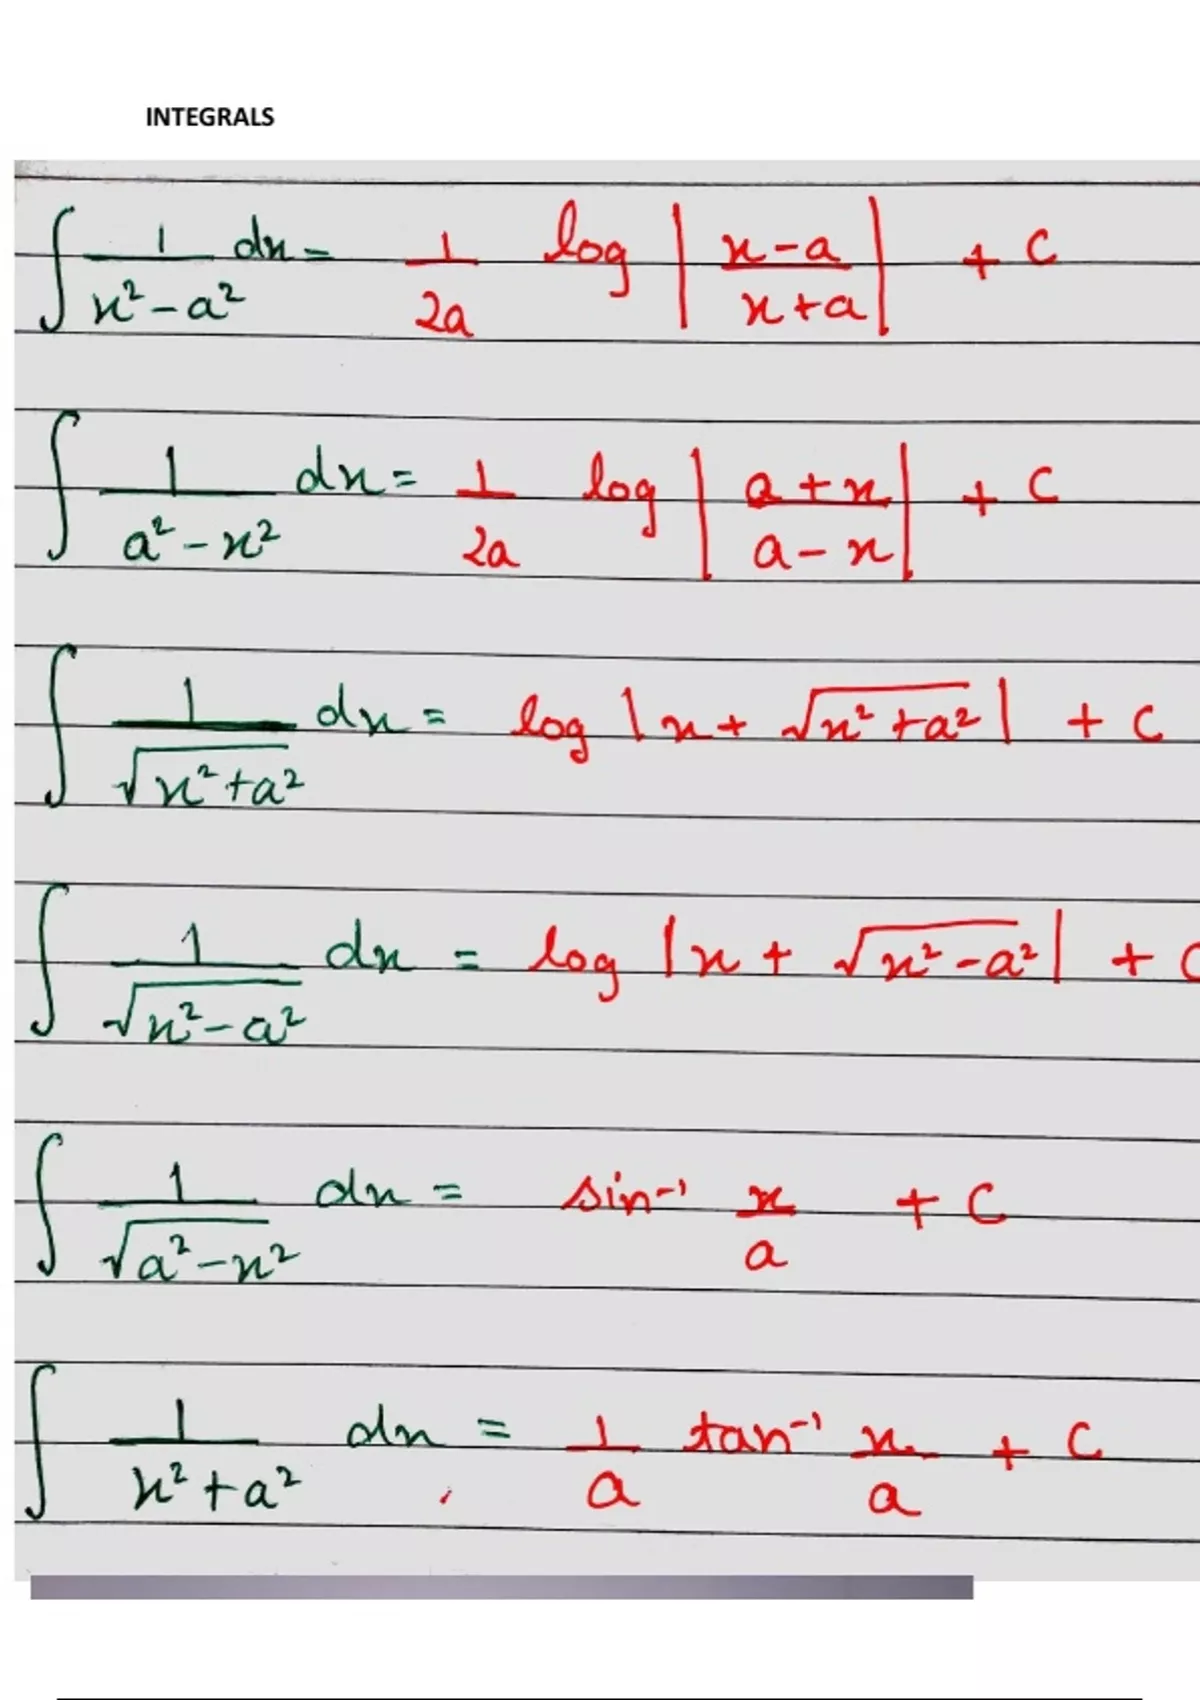 INTEGRALS
∫ 1/(x² - a²) dx = 1/2a log |(x - a)/(x + a)| + C
∫ 1/(a² - x²) dx = 1/2a log |(a + x)/(a - x)| + C
∫ 1/√(x² + a²) dx = log |x + √(x² + a²)| + C
∫ 1/√(x² - a²) dx = log |x + √(x² - a²)| + C
∫ 1/√(a² - x²) dx = sin⁻¹ x/a + C
∫ 1/(x² + a²) dx = 1/a tan⁻¹ x/a + C